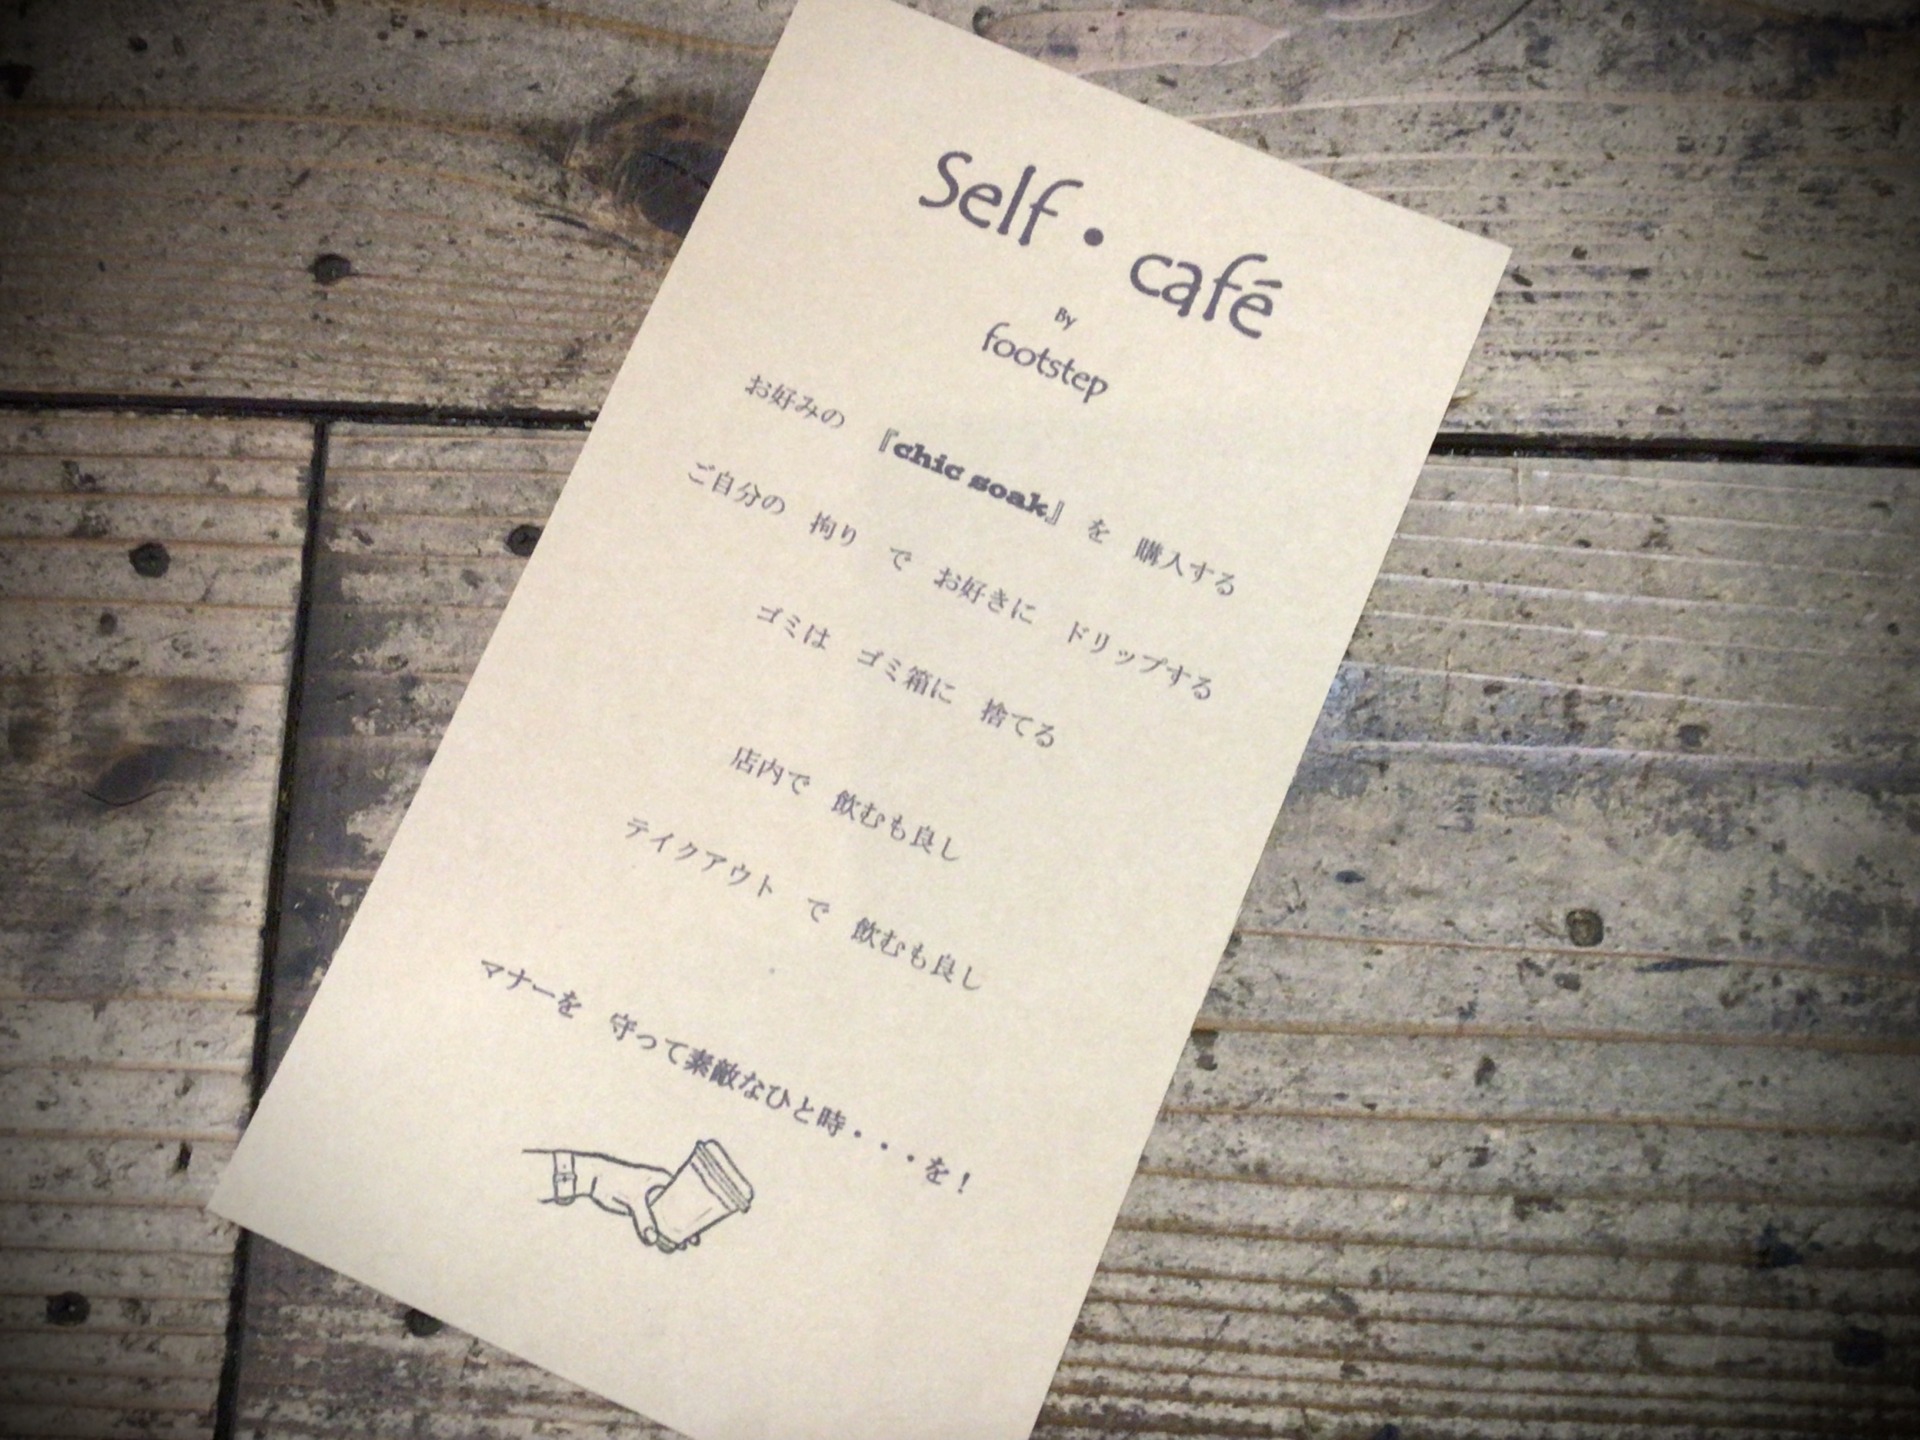 Self・café
By
footstep
お好みの 『chic soak』 を 購入する
ご自分の 拘り で お好きに ドリップする
ゴミは ゴミ箱に 捨てる
店内で 飲むも良し
テイクアウト で 飲むも良し
マナーを 守って素敵なひと時・・・を！